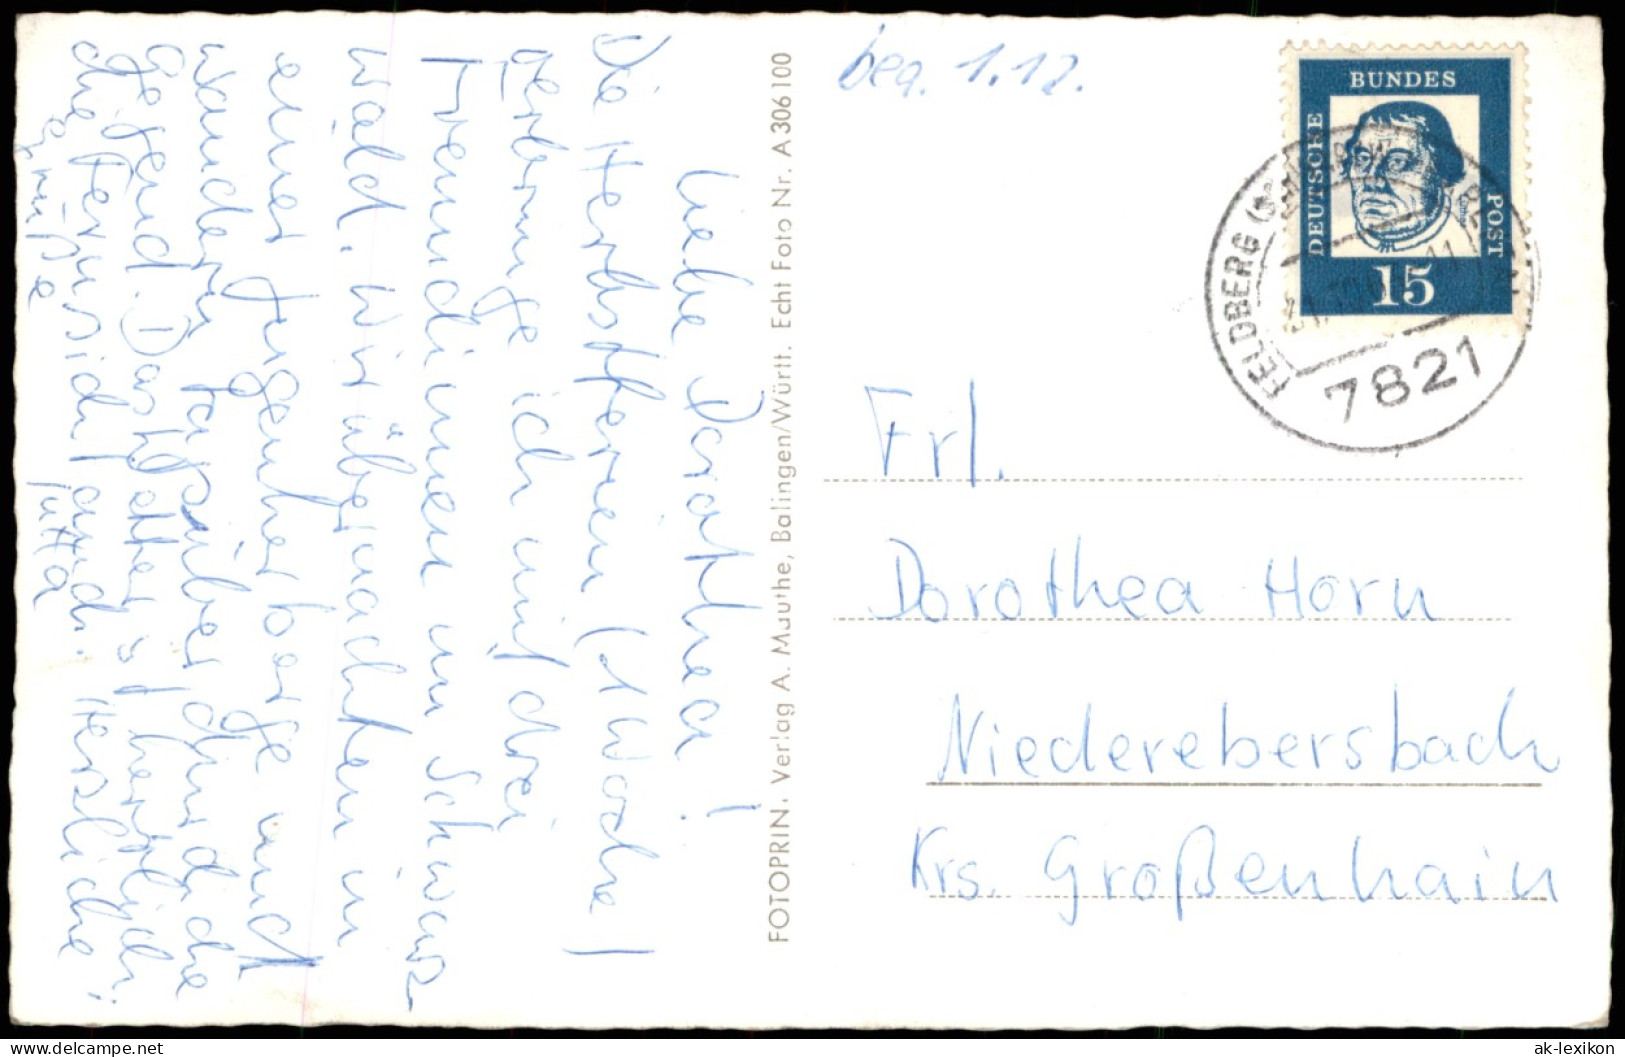 Liebe Dorothea!
Die Herbstferien (1 Woche)
verbringe ich mit drei
Freundinnen im Schwarz-
wald. Wir übernachten in
einer Jugenherberge und
wandern tagsüber durch die
Gegend. Das Wetter ist herrlich;
die Fernsicht auch. Herzliche
Grüße Jutta
FOTOPRIN, Verlag A. Mauthe, Balingen/Württ. Echt Foto Nr. A 306 100
beq. 1.12.
DEUTSCHE
BUNDES
POST
15
FELDBERG (SCHWARZW
7821
Frl.
Dorothea Horn
Niederebersbach
Krs. Großenhain
ak-lexikon